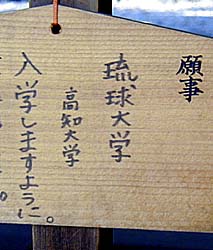 願事
琉球大学
高知大学
入学しますように。